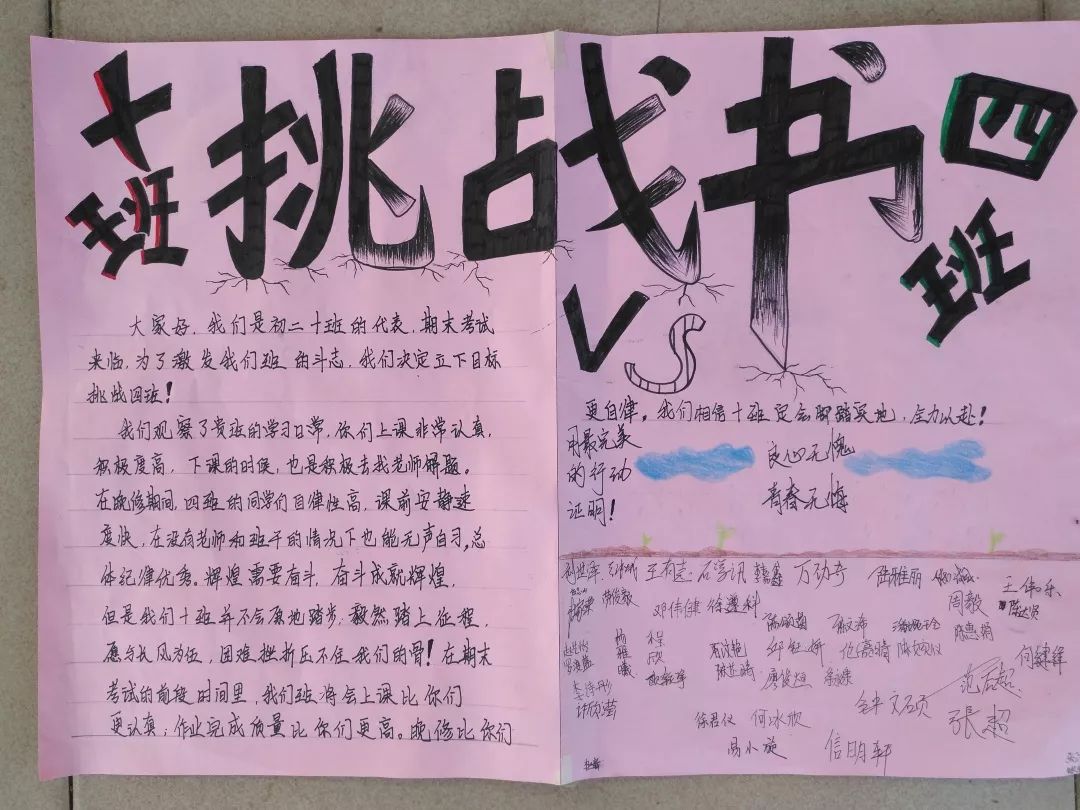 十班
挑战书
四班
VS
大家好，我们是初二十班的代表，期末考试
来临，为了激发我们班的斗志，我们决定立下目标
挑战四班！
我们观察了贵班的学习日常，你们上课非常认真，
积极度高，下课的时候，也是积极去找老师解题。
在晚修期间，四班的同学们自律性高，课前安静速
度快，在没有老师和班干的情况下也能无声自习，总
体纪律优秀。辉煌需要奋斗，奋斗成就辉煌，
但是我们十班并不会原地踏步，毅然踏上征程，
愿与长风为伍，困难挫折压不住我们的骨！在期末
考试的前段时间里，我们班将会上课比你们
更认真；作业完成质量比你们更高。晚修比你们
更自律。我们相信十班定会脚踏实地，全力以赴！
用最完美
的行动
证明！
良心无愧
青春无悔
王有志 石字讯 万劲奇 陆雅丽 王伟乐
邓伟健 徐遵科 周毅
陈惠菊
杨雅曦 程欣
何键锋
廖俊恒
范启超
李诗彤
许欣莹
徐君仪 何冰欣 張超
易小旋 信明轩